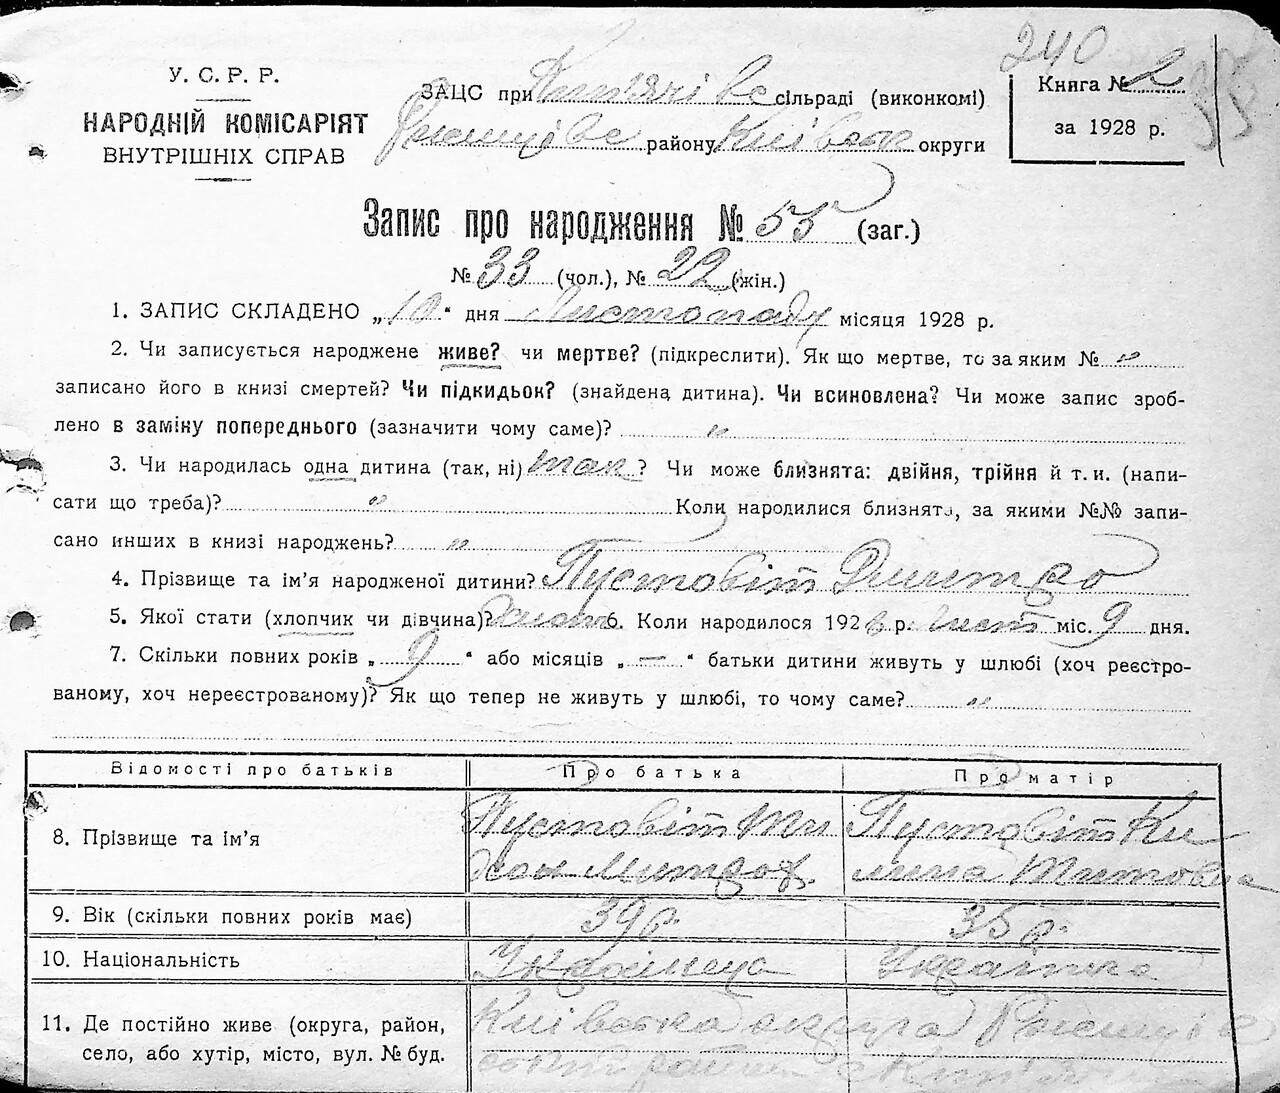 240
У. С. Р. Р.
НАРОДНІЙ КОМІСАРІЯТ
ВНУТРІШНІХ СПРАВ
ЗАЦС при Кип'ячівс сільраді (виконкомі)
Ржищівс району Київськ округи
Книга № 2
за 1928 р.
Запис про народження № 55 (заг.)
№ 33 (чол.), № 22 (жін.)
1. ЗАПИС СКЛАДЕНО „10“ дня Листопаду місяця 1928 р.
2. Чи записується народжене живе? чи мертве? (підкреслити). Як що мертве, то за яким № „
записано його в книзі смертей? Чи підкидьок? (знайдена дитина). Чи всиновлена? Чи може запис зроб-
лено в заміну попереднього (зазначити чому саме)? „
3. Чи народилась одна дитина (так, ні) так ? Чи може близнята: двійня, трійня й т. и. (напи-
сати що треба)? „ Коли народилися близнята, за якими №№ запи-
сано инших в книзі народжень? „
4. Прізвище та ім'я народженої дитини? Пустовіт Дмитро
5. Якої стати (хлопчик чи дівчина)? 6. Коли народилося 1928 р. Лист міс. 9 дня.
7. Скільки повних років „ 9 “ або місяців „ — “ батьки дитини живуть у шлюбі (хоч реєстро-
ваному, хоч нереєстрованому)? Як що тепер не живуть у шлюбі, то чому саме? „
Відомості про батьків Про батька Про матір
8. Прізвище та ім'я Пустовіт Ти Пустовіт Ки
хон Митроф. лина Титовна
9. Вік (скільки повних років має) 39 р. 35 р.
10. Національність Українець Українка
11. Де постійно живе (округа, район, Київська округа Ржищів
село, або хутір, місто, вул. № буд. ський район